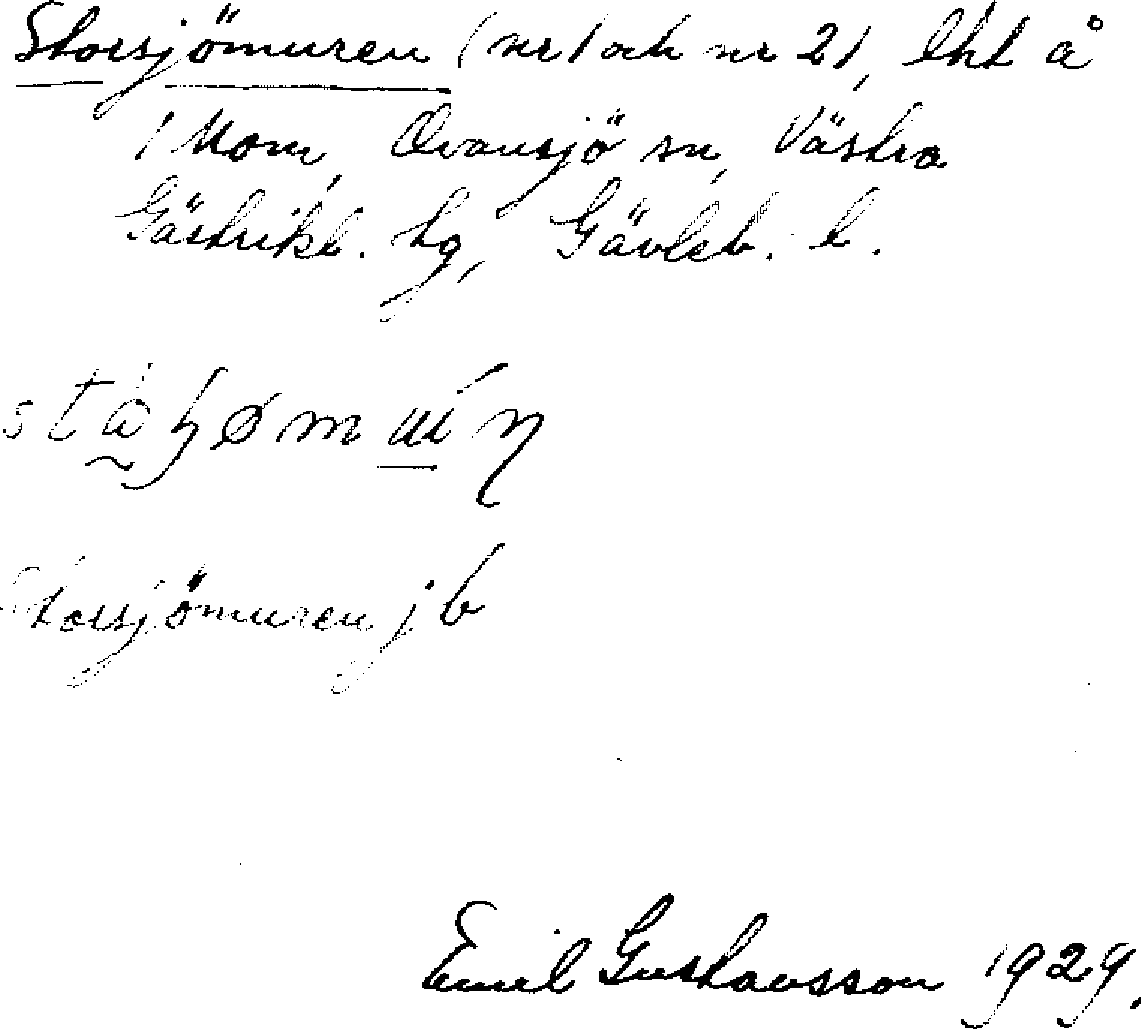 Storsjömuren (nr 1 och nr 2), lht å
1 Mom, Ovansjö sn, Västra
Gästrikl. tg, Gävleb. l.
Storsjömuren jb
Emil Gustavsson 1929.